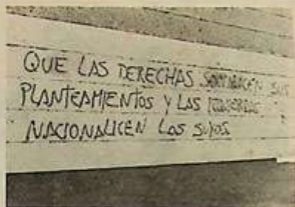 QUE LAS DERECHAS SOCIALICEN SUS
PLANTEAMIENTOS Y LAS IZQUIERDAS
NACIONALICEN LOS SUYOS